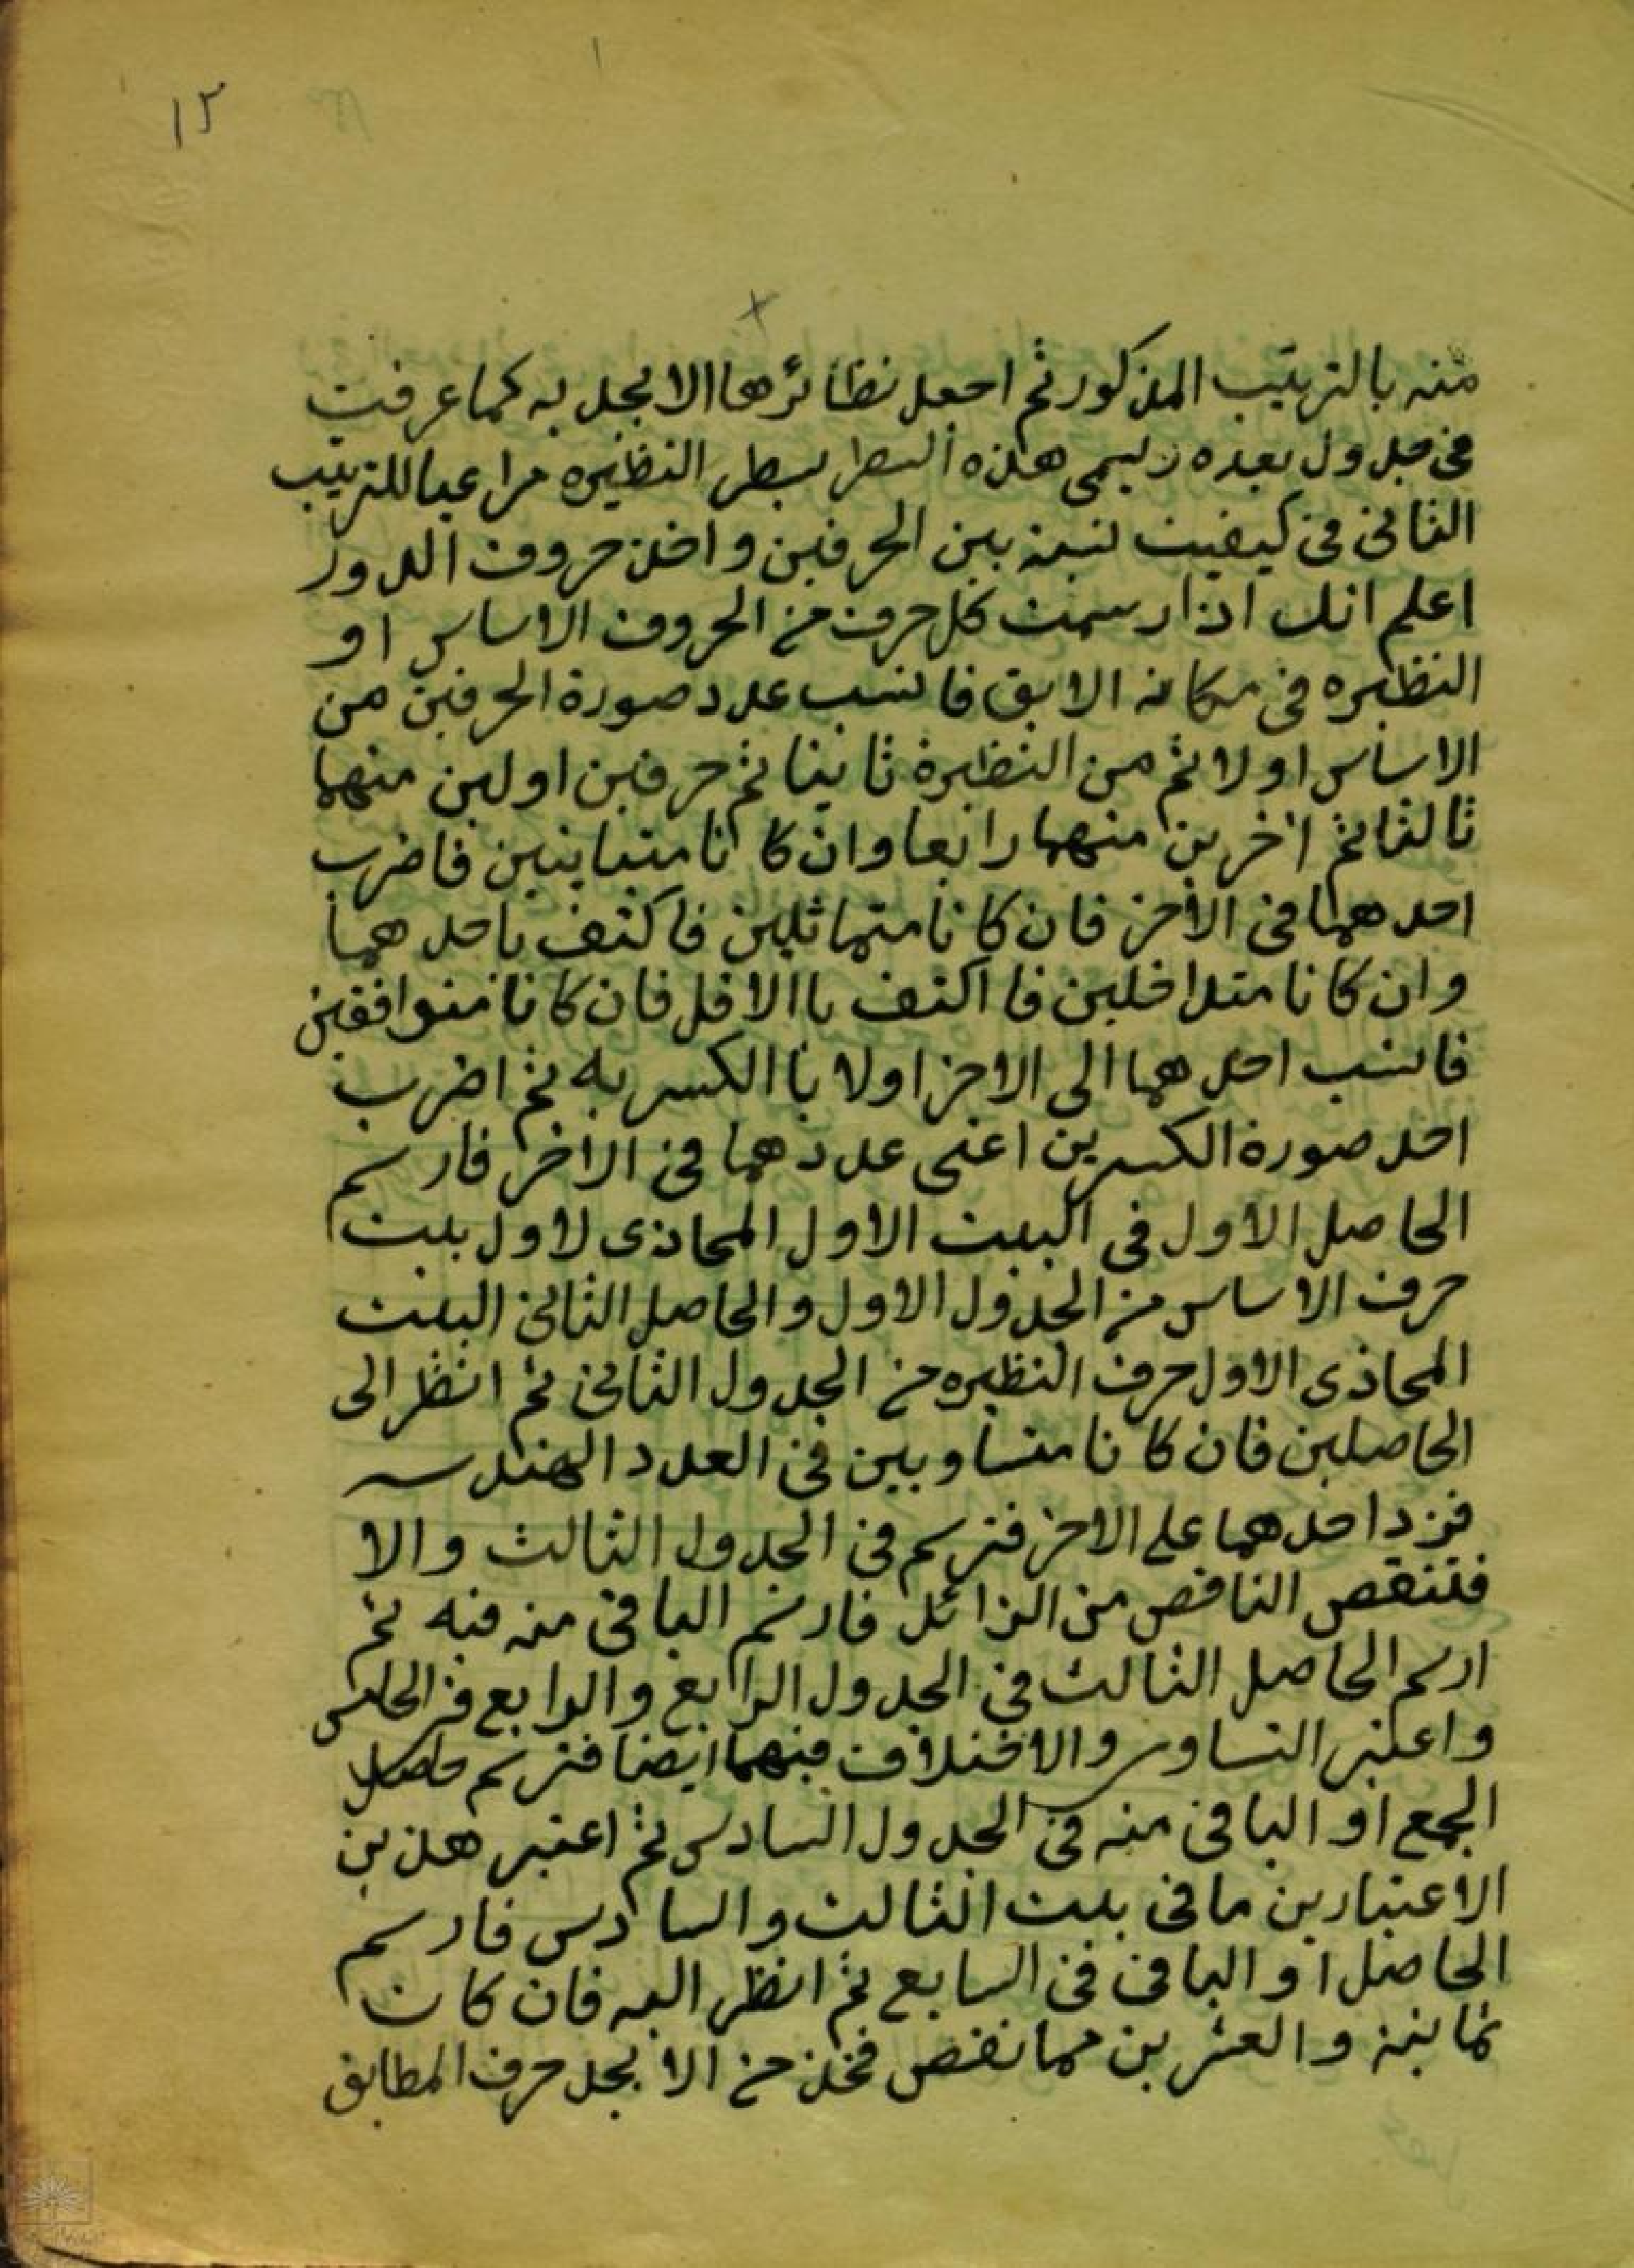 ١٢
منه بالترتيب المذكور ثم اجعل نظائرها الابجديه كما عرفت
فی جدول بعده و یسمی هذه السطر بسطر النظیره مراعیا للترتیب
الثانی فی کیفیت نسبة بین الحرفین و اخذ حروف الدور
اعلم انك اذا رسمت كل حرف من الحروف الاساس او
النظیره فی مکانه الایق فانسب عدد صورة الحرفین من
الاساس اولا ثم من النظیرة ثانیا ثم حرفین اولین منهما
ثالثا ثم اخرین منهما رابعا وان كانا متباینین فاضرب
احدهما فی الآخر فان کانا متماثلین فاکتف باحدهما
وان كانا متداخلین فااکتف باالاقل فان کانا متوافقین
فانسب احدهما الی الاخر اولا باالکسریه ثم اضرب
احد صورة الکسرین اعنی عددهما فی الاخر فارسم
الحاصل الاول فی البیت الاول المحاذی لاول بیت
حرف الاساس من الجدول الاول والحاصل الثانی البیت
المحاذی الاول حرف النظیره من الجدول الثانی ثم انظر الی
الحاصلین فان کانا متساویین فی العدد الهندسه
فزد احدهما علی الاخر فترسم فی الجدول الثالث والا
فتنقص الناقص من الزائد فارسم الباقی منه فیه ثم
ارسم الحاصل الثالث فی الجدول الرابع والرابع فی الخامس
واعتبر التساوی والاختلاف فیهما ایضا فترسم حاصل
الجمع او الباقی منه فی الجدول السادس ثم اعتبر هذین
الاعتبارین مافی بیت الثالث والسادس فارسم
الحاصل او الباقی فی السابع ثم انظر الیه فان کان
ثمانیة والعشرین مما نقص فخذ من الابجد حرف المطابق